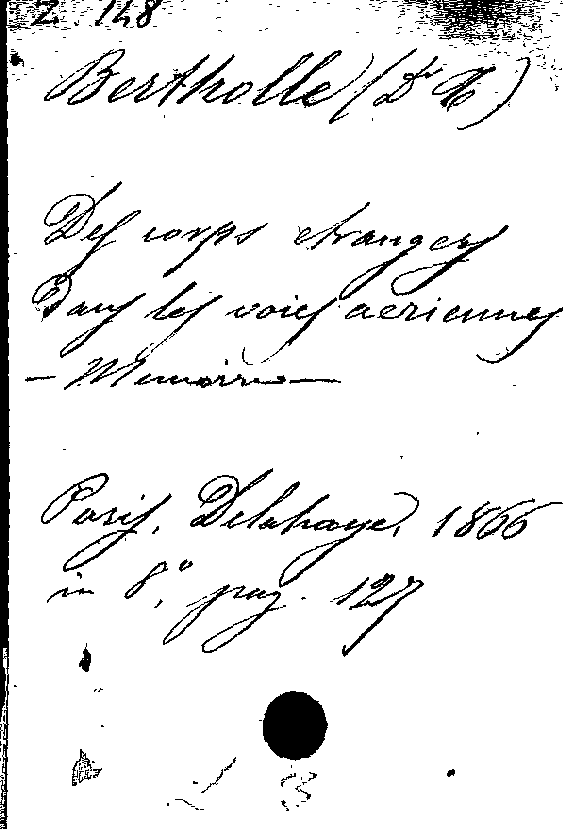 Z. 148
Bertholle (Dr H)
Des corps etrangers
Dans les voies aeriennes
- Memoire -
Paris, Delahaye, 1866
in 8º, pag. 127